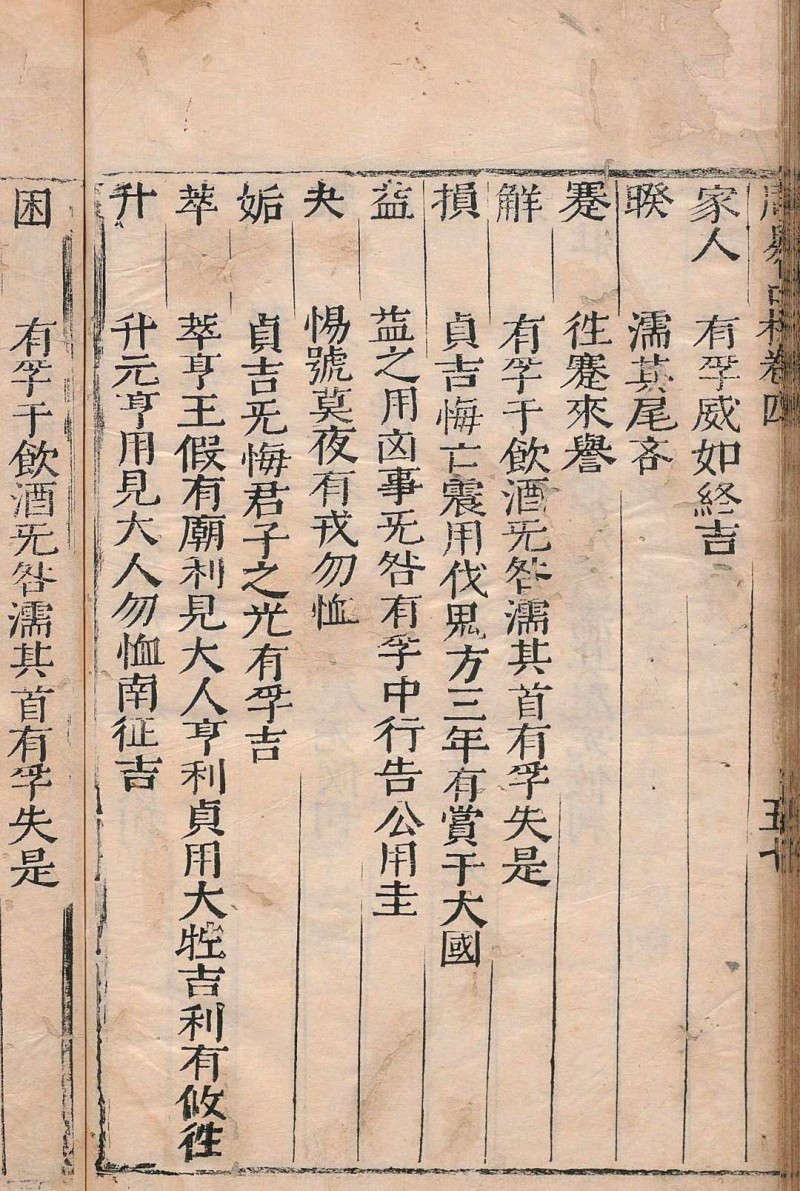 周易占林卷四 五十
家人 有孚威如終吉
睽 濡其尾吝
蹇 往蹇來譽
解 有孚于飲酒无咎濡其首有孚失是
損 貞吉悔亡震用伐鬼方三年有賞于大國
益 益之用凶事无咎有孚中行告公用圭
夬 惕號莫夜有戎勿恤
姤 貞吉无悔君子之光有孚吉
萃 萃亨王假有廟利見大人亨利貞用大牲吉利有攸往
升 升元亨用見大人勿恤南征吉
困 有孚于飲酒无咎濡其首有孚失是